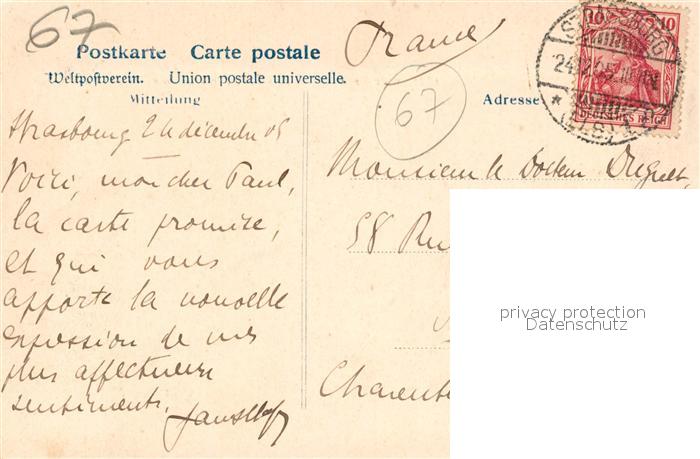 67
Postkarte Carte postale
Weltpostverein. Union postale universelle.
Mitteilung
France
67
Adresse
10 10
STRASSBURG
24.12.05.
(ELS.) 1
DEUTSCHES REICH
Strasbourg 24 décembre 05
Voici, mon cher Paul,
la carte promise,
et qui vous
apporte la nouvelle
expression de mes
plus affectueux
sentiments.
Monsieur le Docteur
58 Rue
Charente
privacy protection
Datenschutz